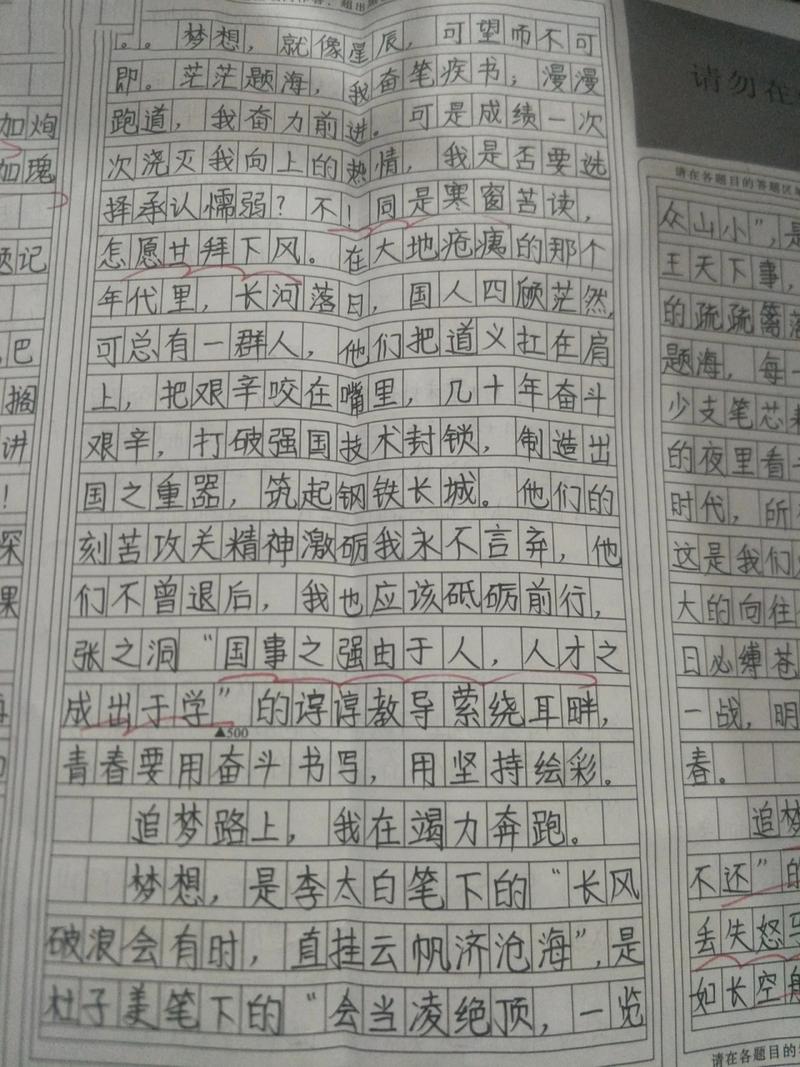 加炮
加瑰
题记
巴
搁
讲
！
深
果
。。梦想，就像星辰，可望而不可
即。茫茫题海，我奋笔疾书；漫漫
跑道，我奋力前进。可是成绩一次
次浇灭我向上的热情，我是否要选
择承认懦弱？不！同是寒窗苦读，
怎愿甘拜下风。在大地疮痍的那个
年代里，长河落日，国人四顾茫然，
可总有一群人，他们把道义扛在肩
上，把艰辛咬在嘴里，几十年奋斗
艰辛，打破强国技术封锁，制造出
国之重器，筑起钢铁长城。他们的
刻苦攻关精神激砺我永不言弃，他
们不曾退后，我也应该砥砺前行，
张之洞“国事之强由于人，人才之
成出于学”的谆谆教导萦绕耳畔，
▲500
青春要用奋斗书写，用坚持绘彩。
追梦路上，我在竭力奔跑。
梦想，是李太白笔下的“长风
破浪会有时，直挂云帆济沧海”，是
杜子美笔下的“会当凌绝顶，一览
请勿在
请在各题目的答题区域
众山小”，是
王天下事，
的疏疏篱落
题海，每一
少支笔芯
的夜里看
时代，所
这是我们
大的向往
日必缚苍
一战，明
春。
追梦
不还”的
丢失怒
如长空
请在各题目的答